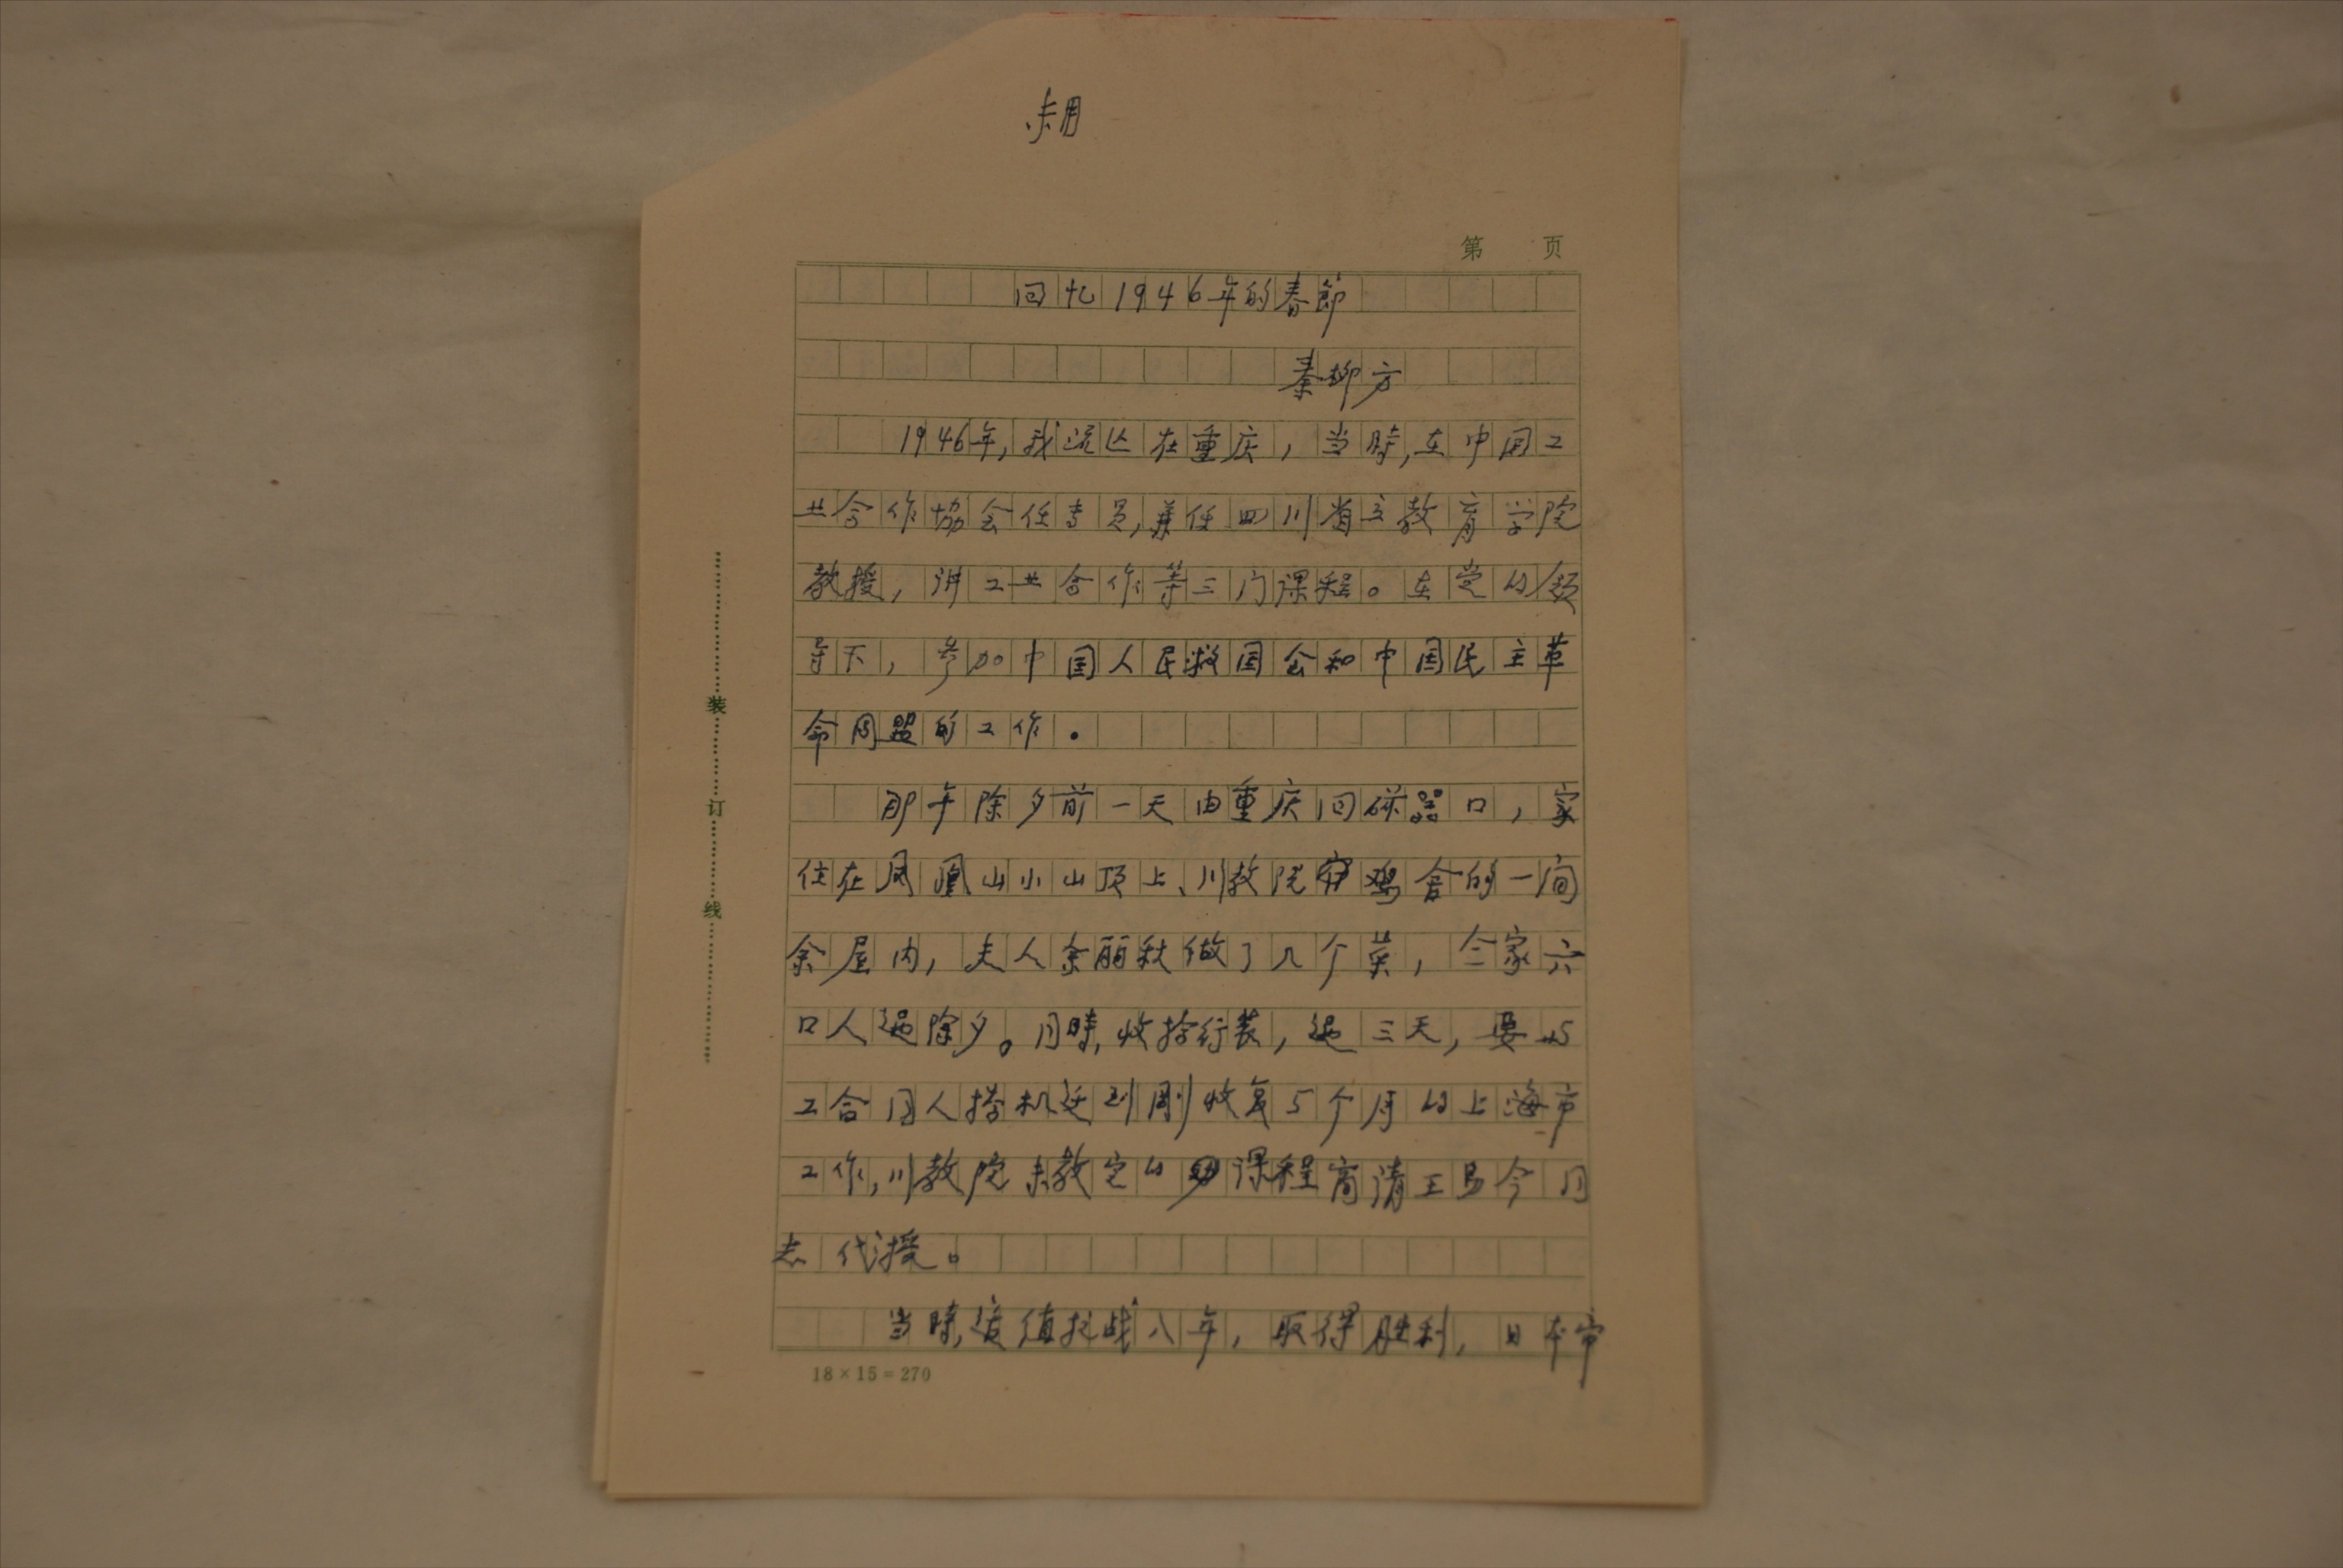 未用
第 页
回忆1946年的春節
秦柳方
1946年,我流亡在重庆,当時,在中国工
业合作協会任专员,兼任四川省立教育学院
教授,讲工业合作等三门课程。在党的领
导下,参加中国人民救国会和中国民主革
命同盟的工作。
那年除夕前一天由重庆回磁器口,家
住在凤凰山小山顶上、川教院鸡舍的一间
余屋内,夫人余丽秋做了几个菜,全家六
口人过除夕。同時,收拾行装,过三天,要与
工合同人搭机迁到刚收复5个月的上海市
工作,川教院未教完的课程商请王易今同
志代授。
当時,适值抗战八年,取得胜利,日本帝
18×15=270
装
订
线